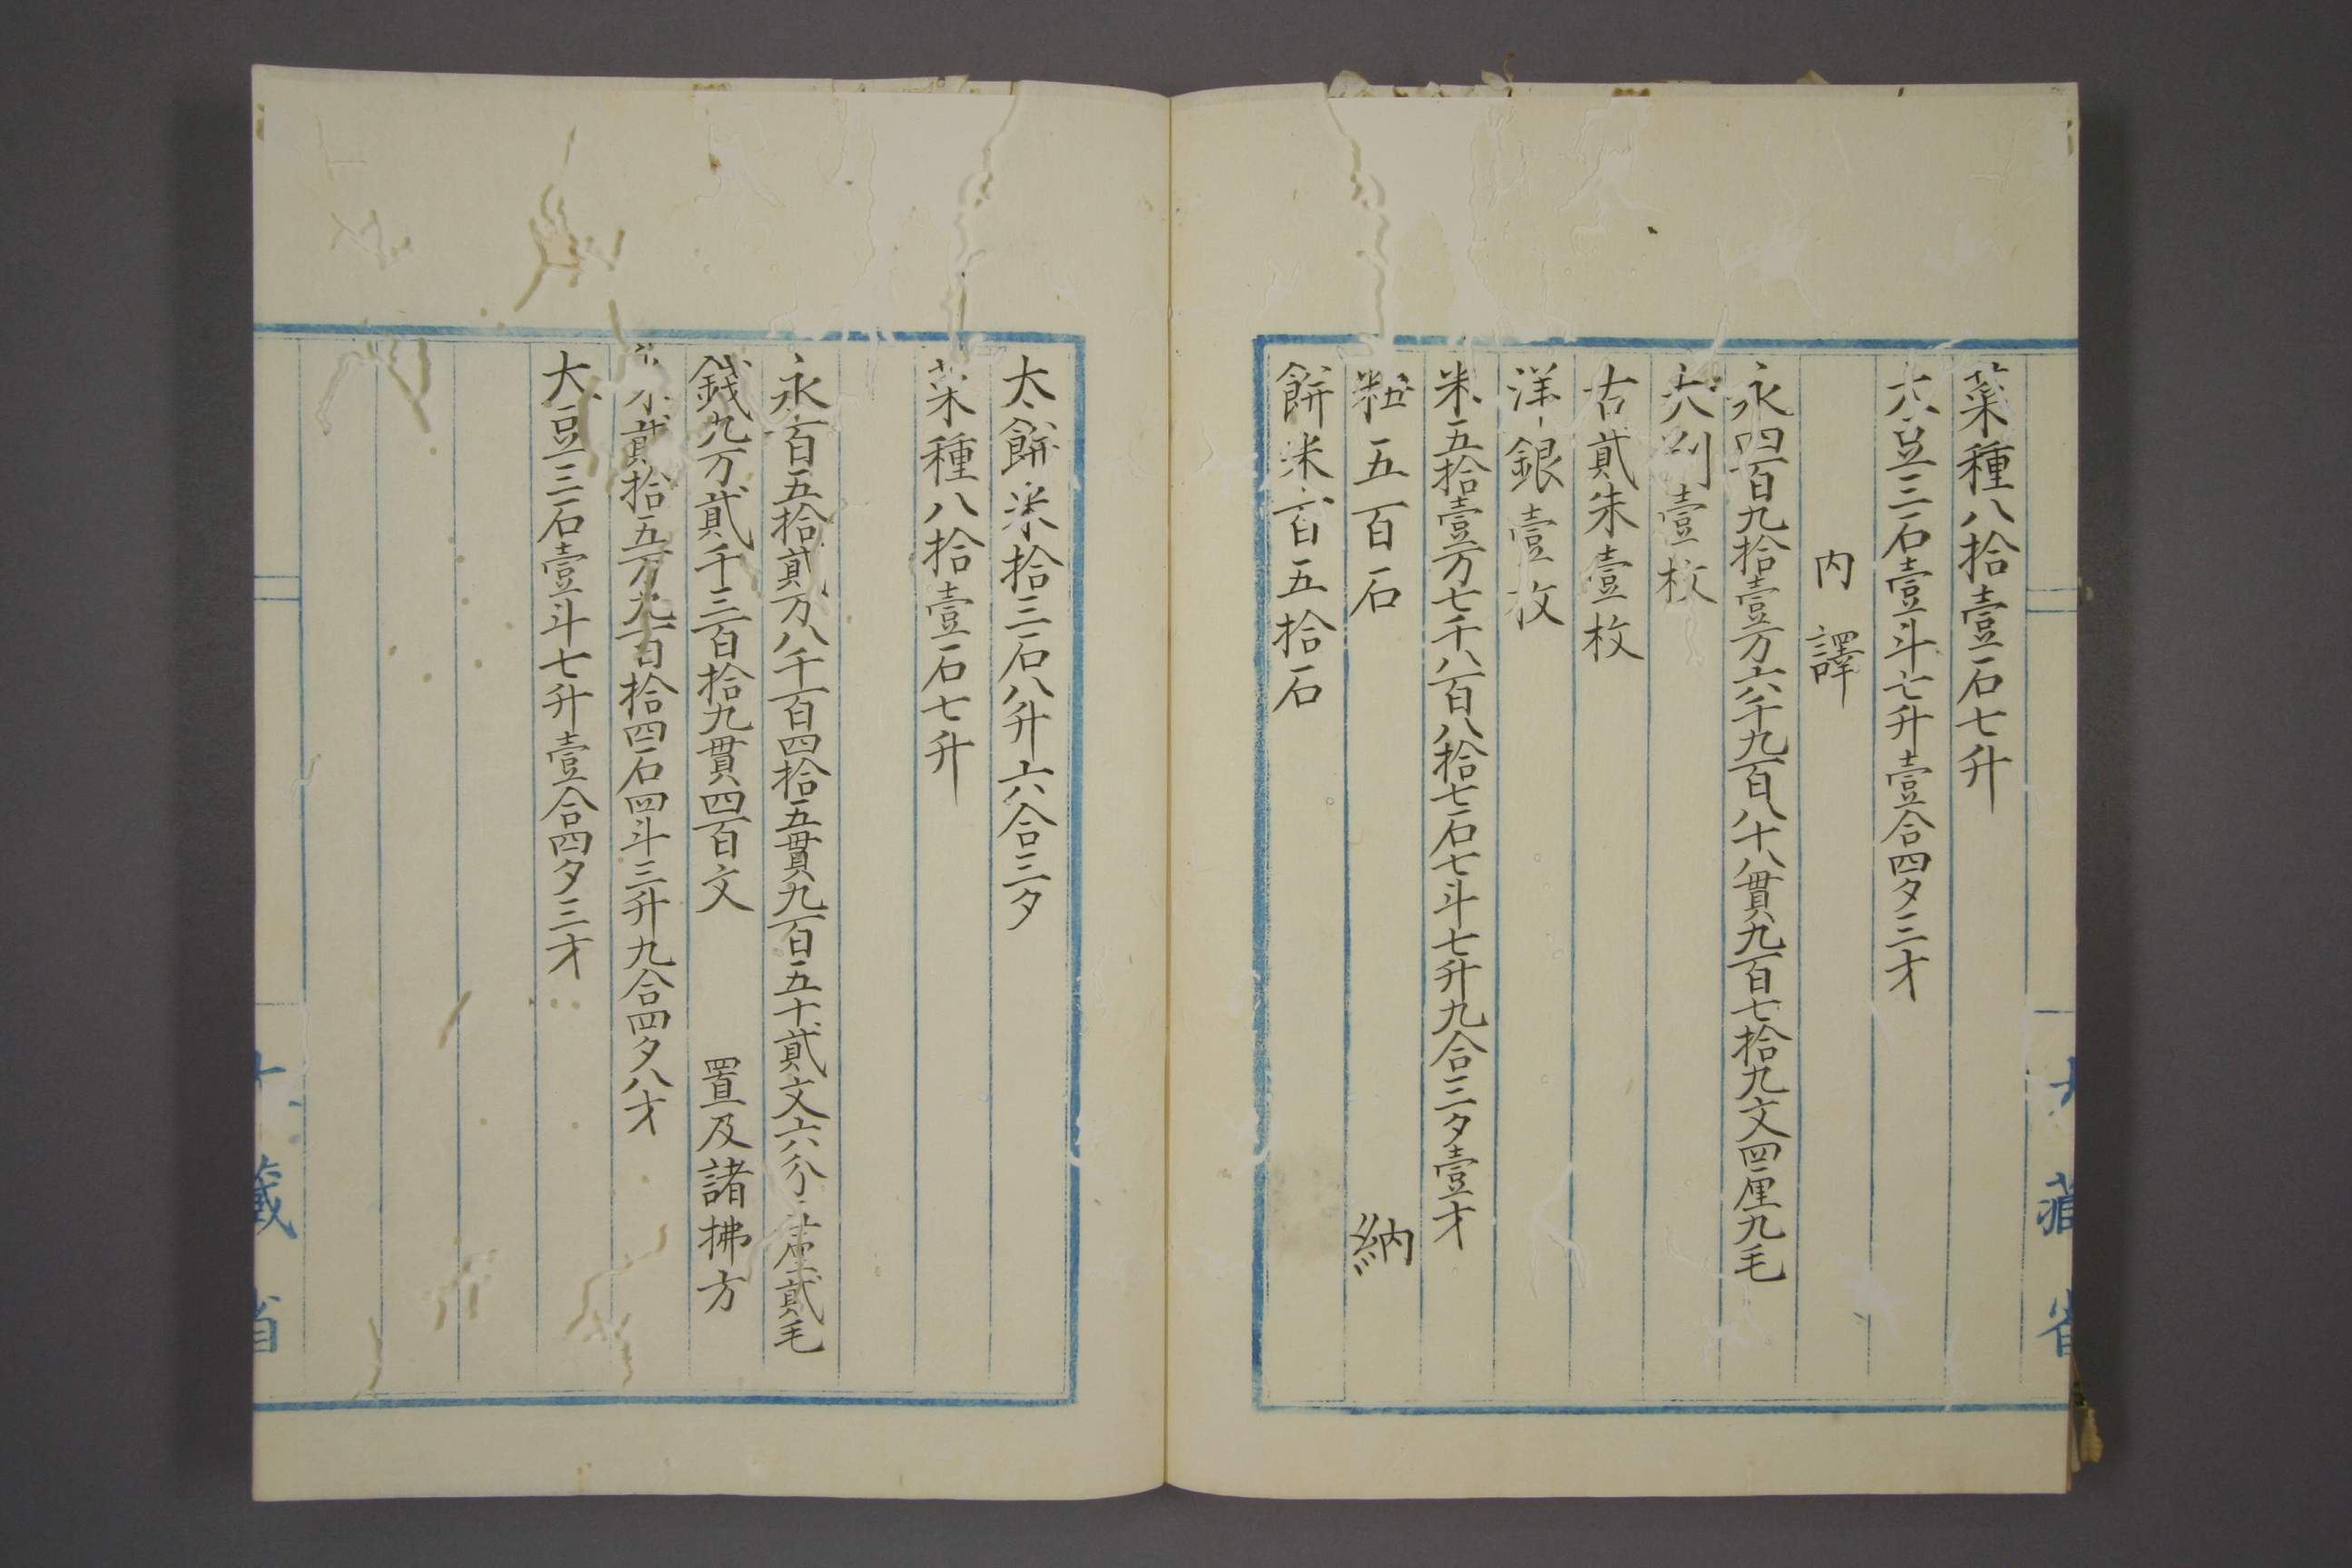 菜種八拾壹石七升
大豆三石壹斗七升壹合四夕三才
内譯
永四百九拾壹万六千九百八十八貫九百七拾九文四厘九毛
大判壹枚
古貳朱壹枚
洋銀壹枚
米五拾壹万七千八百八拾七石七斗七升九合三夕壹才
粔五百石
納
餅米六百五拾石
大藏省
太餅米拾三石八升六合三夕
菜種八拾壹石七升
永百五拾貳万八千百四拾五貫九百五十貳文六分厘貳毛
錢九万貳千三百拾九貫四百文
置及諸拂方
米貳拾五万九百拾四石四斗三升九合四夕八才
大豆三石壹斗七升壹合四夕三才
大藏省